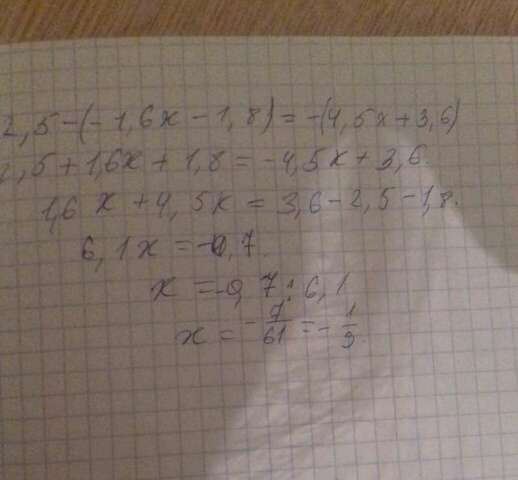 2,5-(-1,6x-1,8)=-(4,5x+3,6)
2,5+1,6x+1,8=-4,5x+3,6.
1,6x+4,5x=3,6-2,5-1,8.
6,1x=-0,7.
x=-0,7:6,1
x=-7/61=-1/9